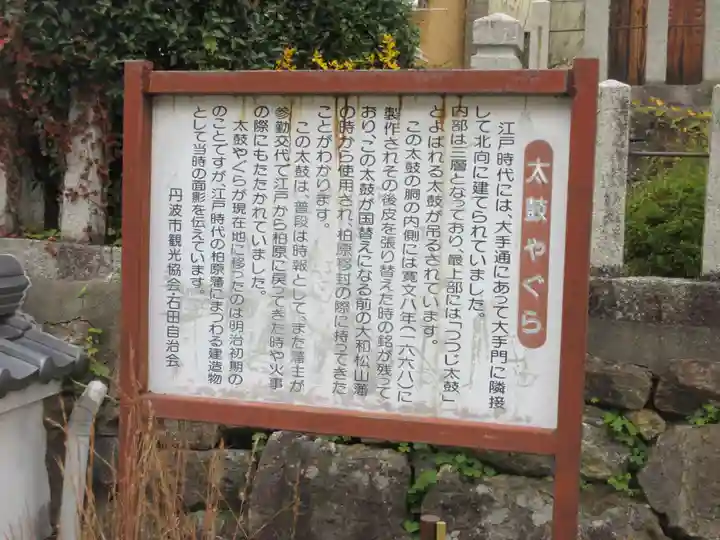 太鼓やぐら
江戸時代には、大手通にあって大手門に隣接
して北向に建てられていました。
内部は三層となっており、最上部には「つつじ太鼓」
とよばれる太鼓が吊るされています。
この太鼓の胴の内側には寛文八年(一六六八)に
製作されその後皮を張り替えた時の銘が残って
おり、この太鼓が国替えになる前の大和松山藩
の時から使用され、柏原移封の際に持ってきた
ことがわかります。
この太鼓は、普段は時報として、また藩主が
参勤交代で江戸から柏原に戻ってきた時や火事
の際にもたたかれていました。
太鼓やぐらが現在地に移ったのは明治初期の
のことですが、江戸時代の柏原藩にまつわる建造物
として当時の面影を伝えています。
丹波市観光協会・石田自治会